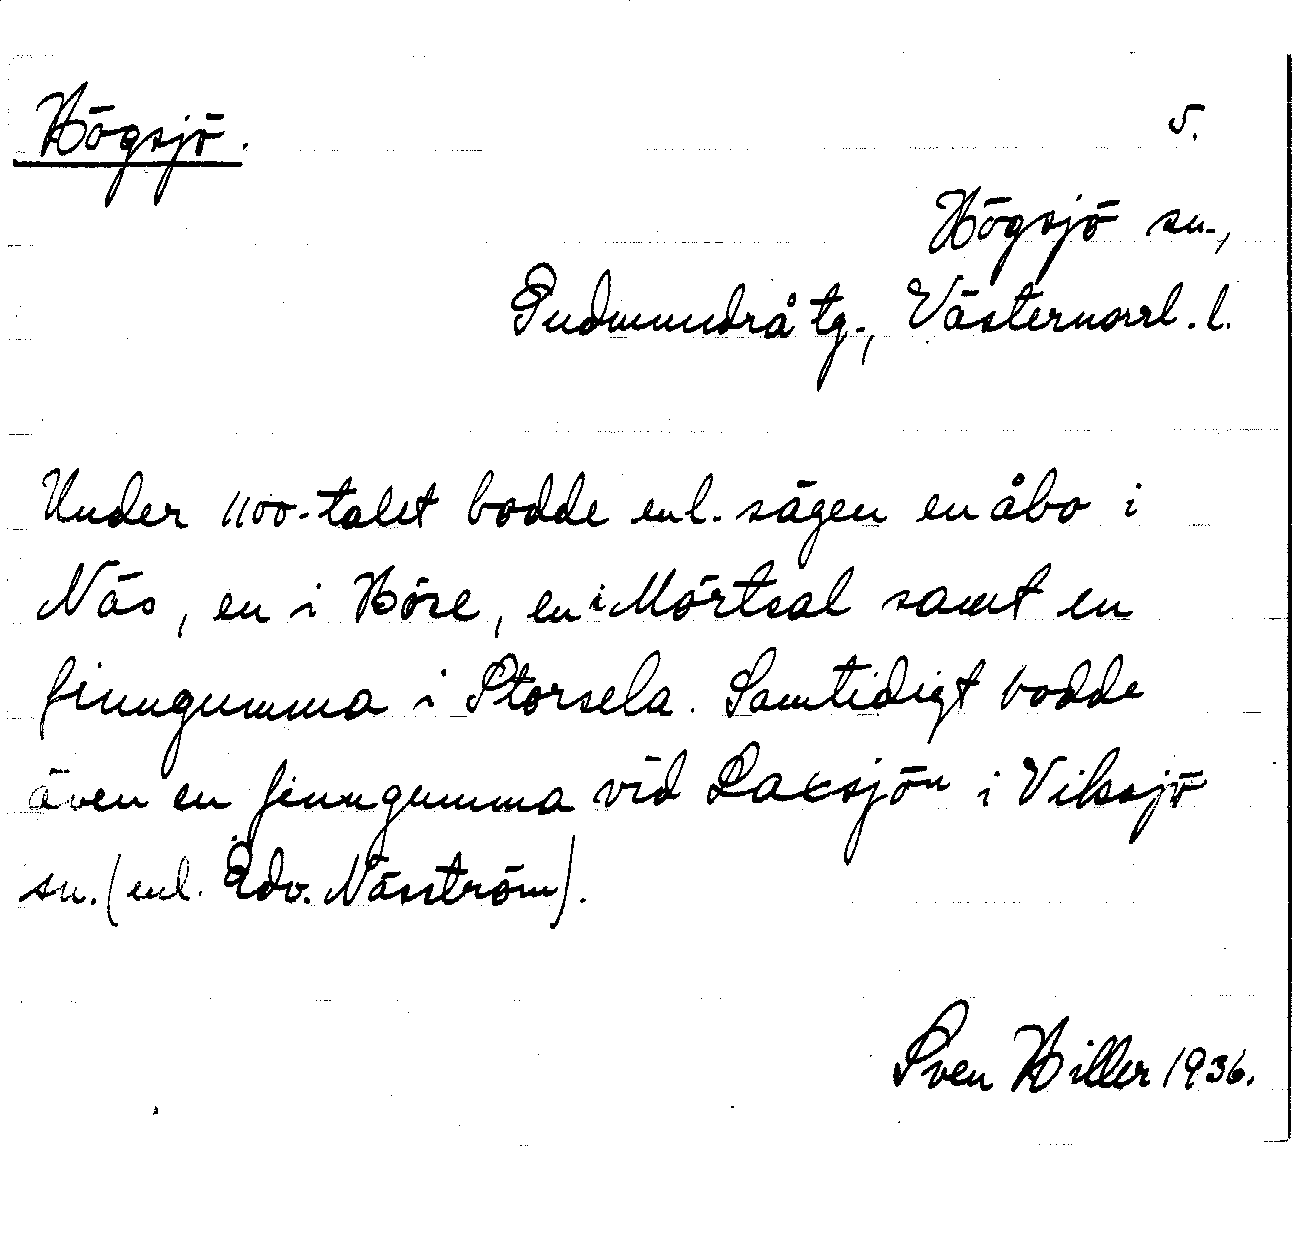 Högsjö.
5.
Högsjö sn.,
Gudmundrå tg., Västernorrl. l.
Under 1100-talet bodde enl. sägen en åbo i
Näs, en i Höre, en i Mörtsal samt en
finngumma i Storsela. Samtidigt bodde
även en finngumma vid Laxsjön i Viksjö
sn. (enl. Edv. Näsström).
Sven Hiller 1936.